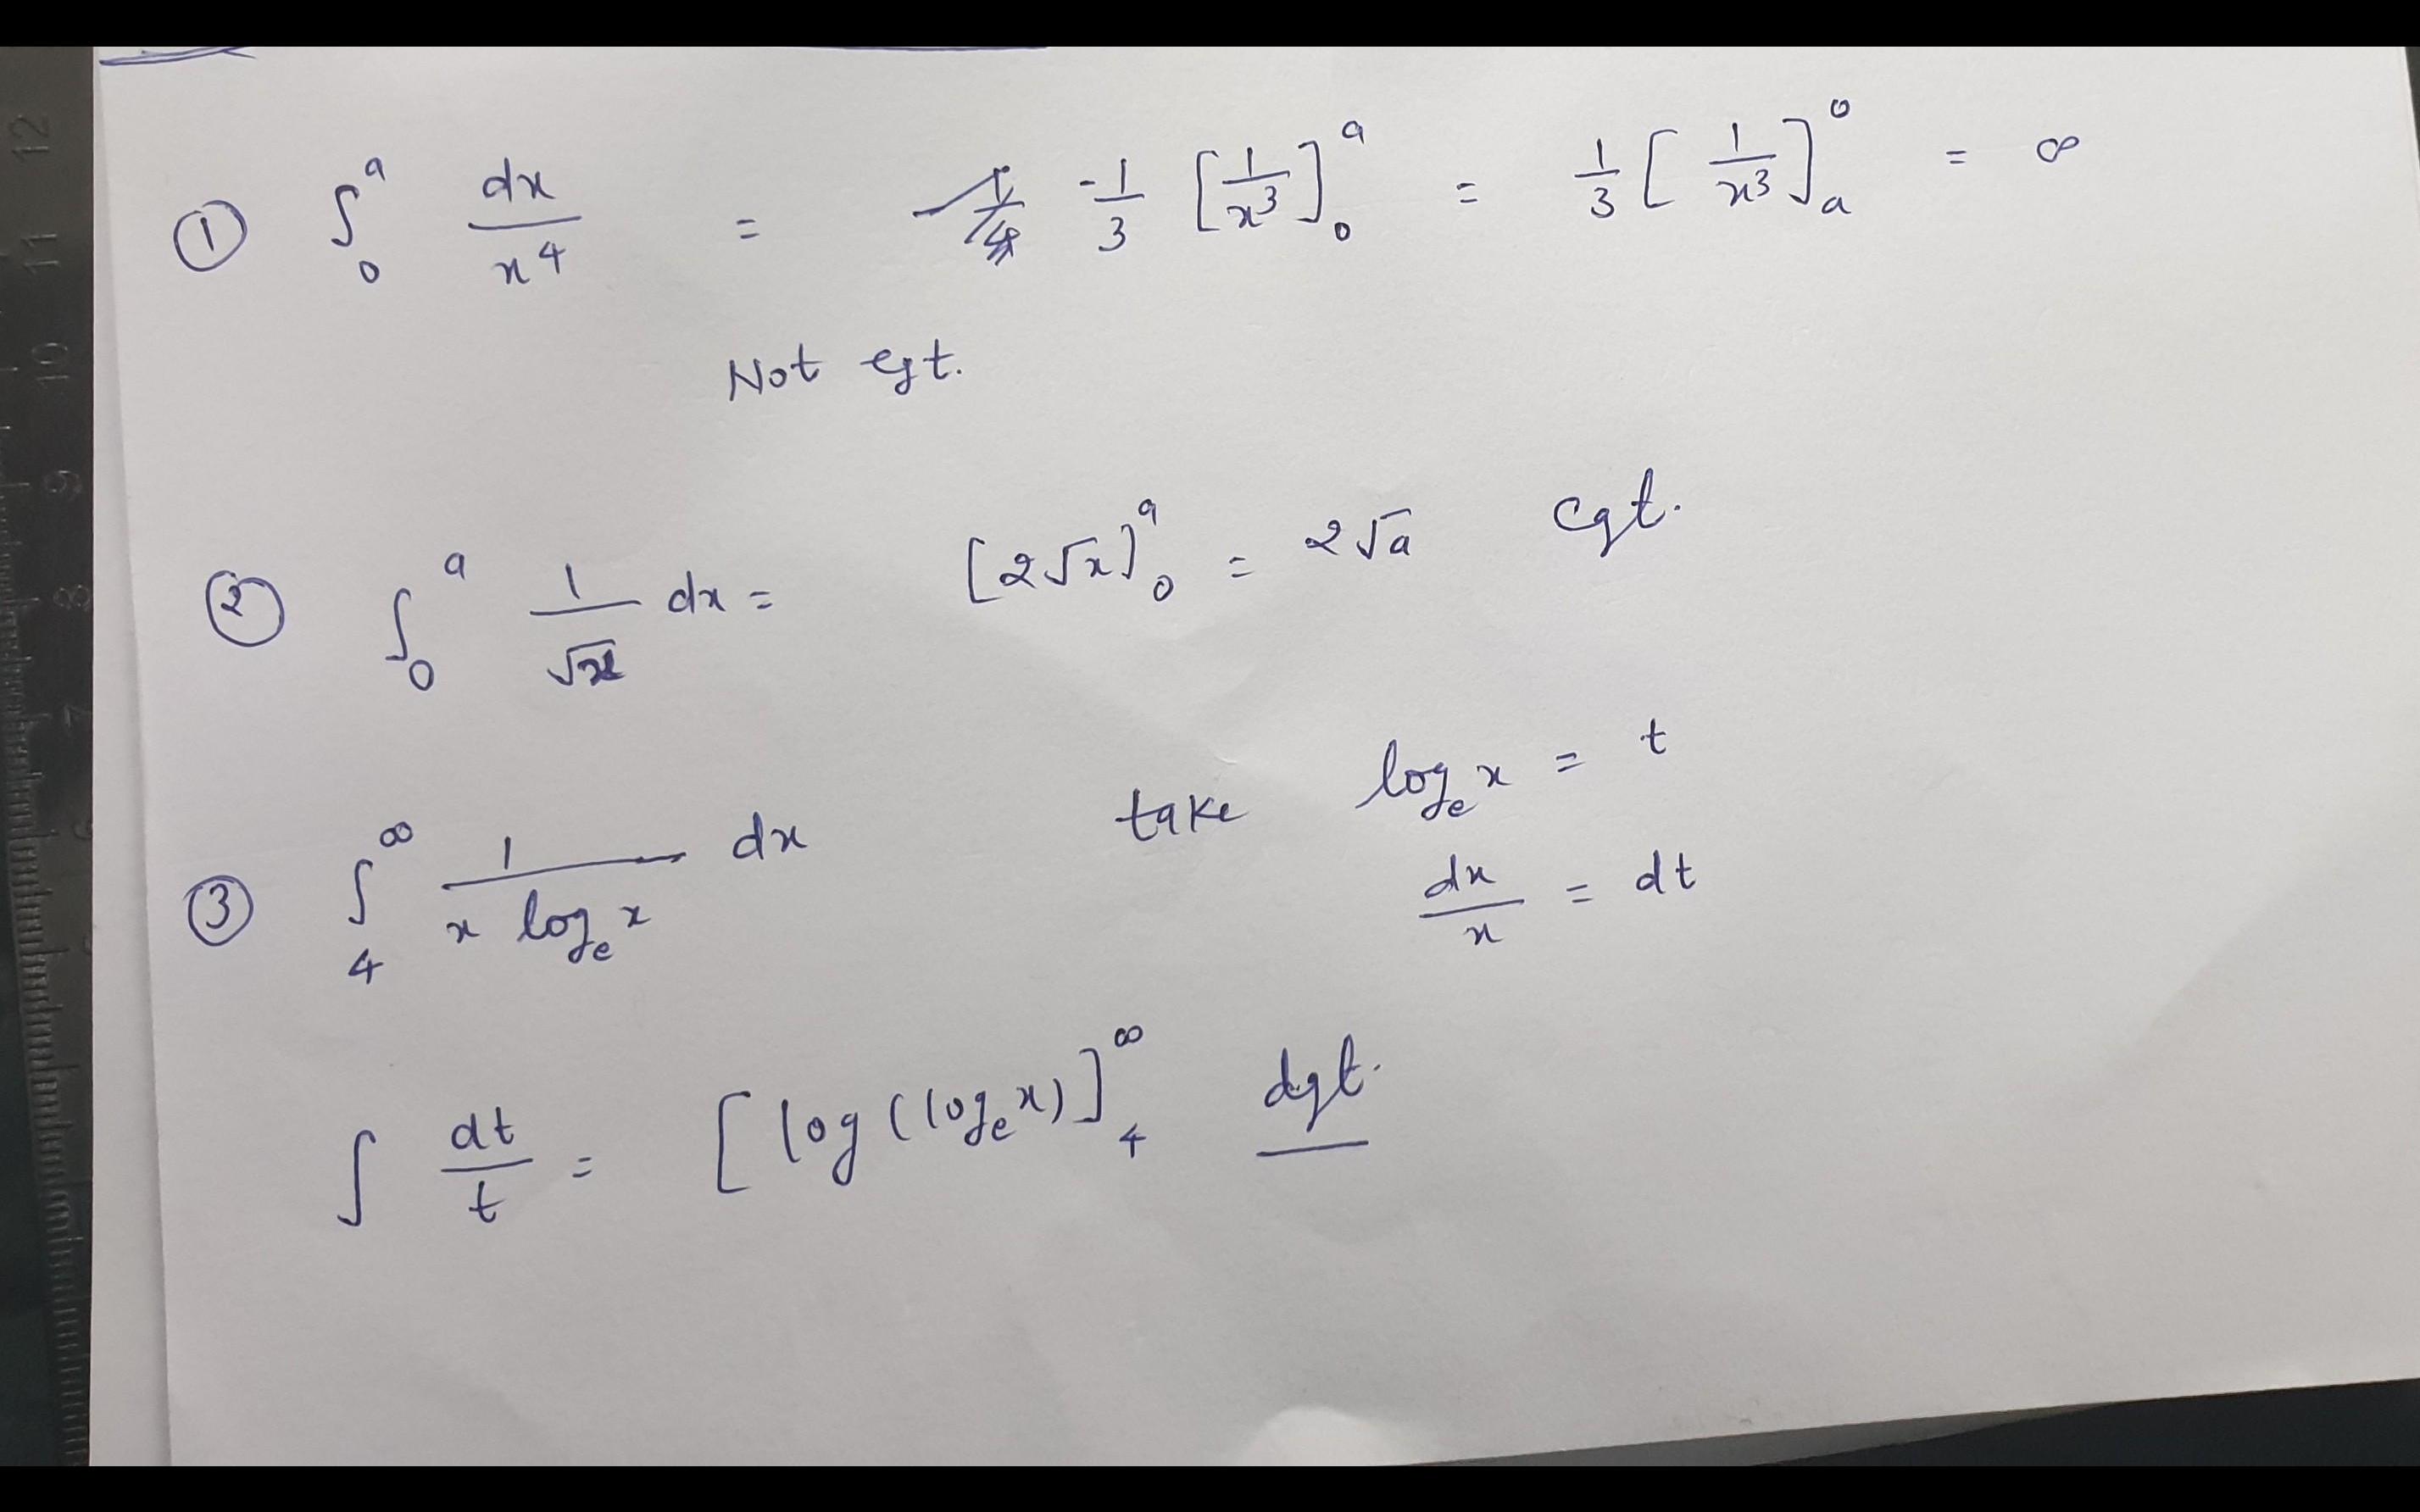 ① ∫₀ᵃ dx/x⁴ = -1/3 [1/x³]₀ᵃ = 1/3 [1/x³]ₐ⁰ = ∞
Not cgt.
② ∫₀ᵃ 1/√x dx = [2√x]₀ᵃ = 2√a cgt.
③ ∫₄^∞ 1/(x logₑ x) dx take logₑ x = t
dx/x = dt
∫ dt/t = [log (logₑ x)]₄^∞ dgt.